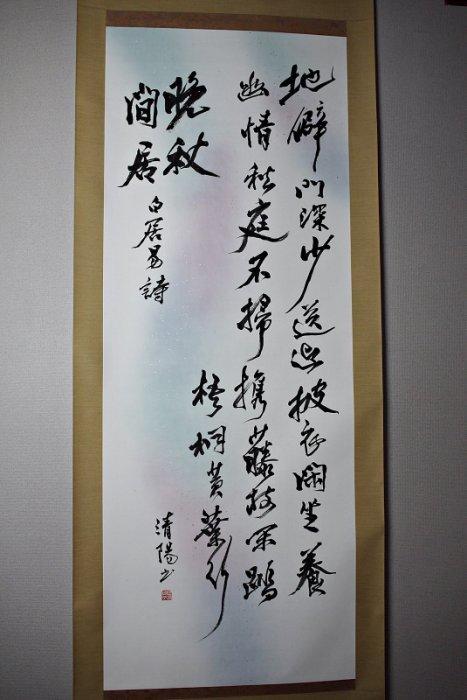 地僻門深少送迎披衣閑坐養
幽情秋庭不掃携藤杖閑蹋
梧桐黄葉行
晩秋
間居
白居易詩
清陽書